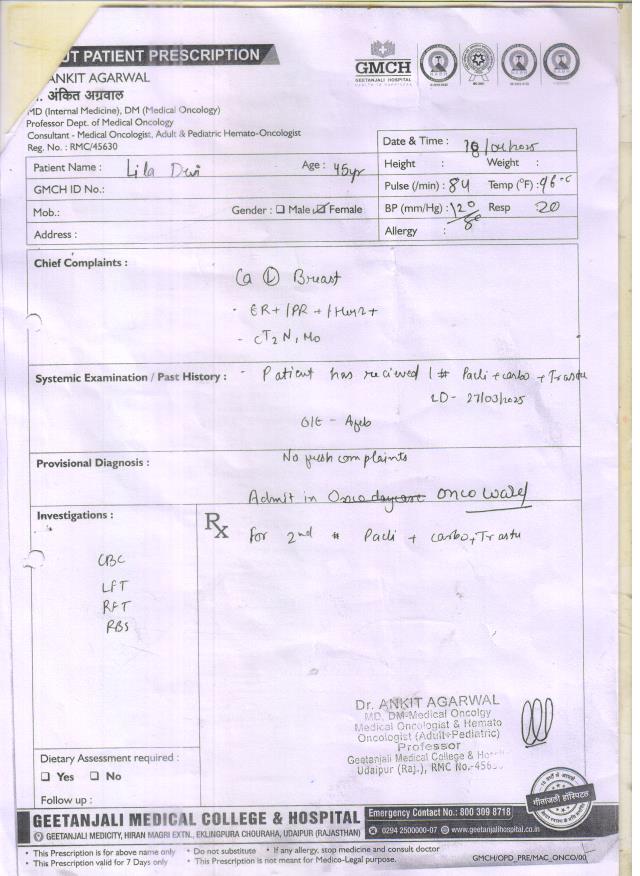 UT PATIENT PRESCRIPTION
ANKIT AGARWAL
. अंकित अग्रवाल
MD (Internal Medicine), DM (Medical Oncology)
Professor Dept. of Medical Oncology
Consultant - Medical Oncologist, Adult & Pediatric Hemato-Oncologist
Reg. No. : RMC/45630
GMCH
GEETANJALI HOSPITAL
Date & Time : 18/04/2025
Patient Name : Lila Devi Age : 45yr
Height : Weight :
GMCH ID No.:
Pulse (/min) : 84 Temp (°F) : 96°C
Mob.: Gender : ☐ Male ☑ Female
BP (mm/Hg) : 120/80 Resp 20
Address :
Allergy :
Chief Complaints :
Ca (L) Breast
- ER+ / PR+ / Her2+
- cT2N1M0
Systemic Examination / Past History : - Patient has recieved 1 # Pacli + carbo + Trastu
LD- 27/03/2025
O/E - Afeb
Provisional Diagnosis :
No fresh complaints
Admit in Onco daycare onco ward
Investigations :
Rx
For 2nd # Pacli + carbo + Trastu
CBC
LFT
RFT
RBS
Dr. ANKIT AGARWAL
MD, DM-Medical Oncolgy
Medical Oncologist & Hemato
Oncologist (Adult+Pediatric)
Professor
Geetanjali Medical College &
Udaipur (Raj.), RMC No.-456
Dietary Assessment required :
☐ Yes ☐ No
Follow up :
गीतांजली हॉस्पिटल
GEETANJALI MEDICAL COLLEGE & HOSPITAL
GEETANJALI MEDICITY, HIRAN MAGRI EXTN., EKLINGPURA CHOURAHA, UDAIPUR (RAJASTHAN)
Emergency Contact No.: 800 309 8718
0294 2500000-07 www.geetanjalihospital.co.in
• This Prescription is for above name only • Do not substitute • If any allergy, stop medicine and consult doctor
• This Prescription valid for 7 Days only • This Prescription is not meant for Medico-Legal purpose.
GMCH/OPD_PRE/MAC_ONCO/00